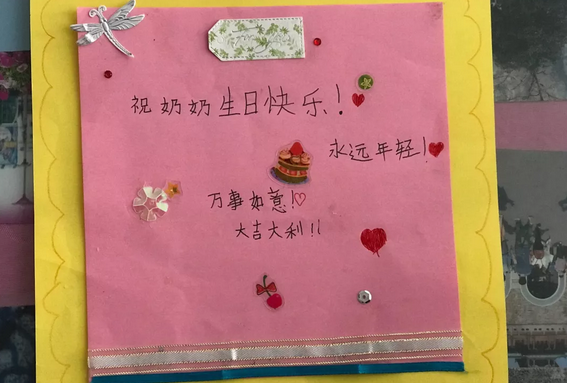 祝奶奶生日快乐!
永远年轻!
万事如意!
大吉大利!!